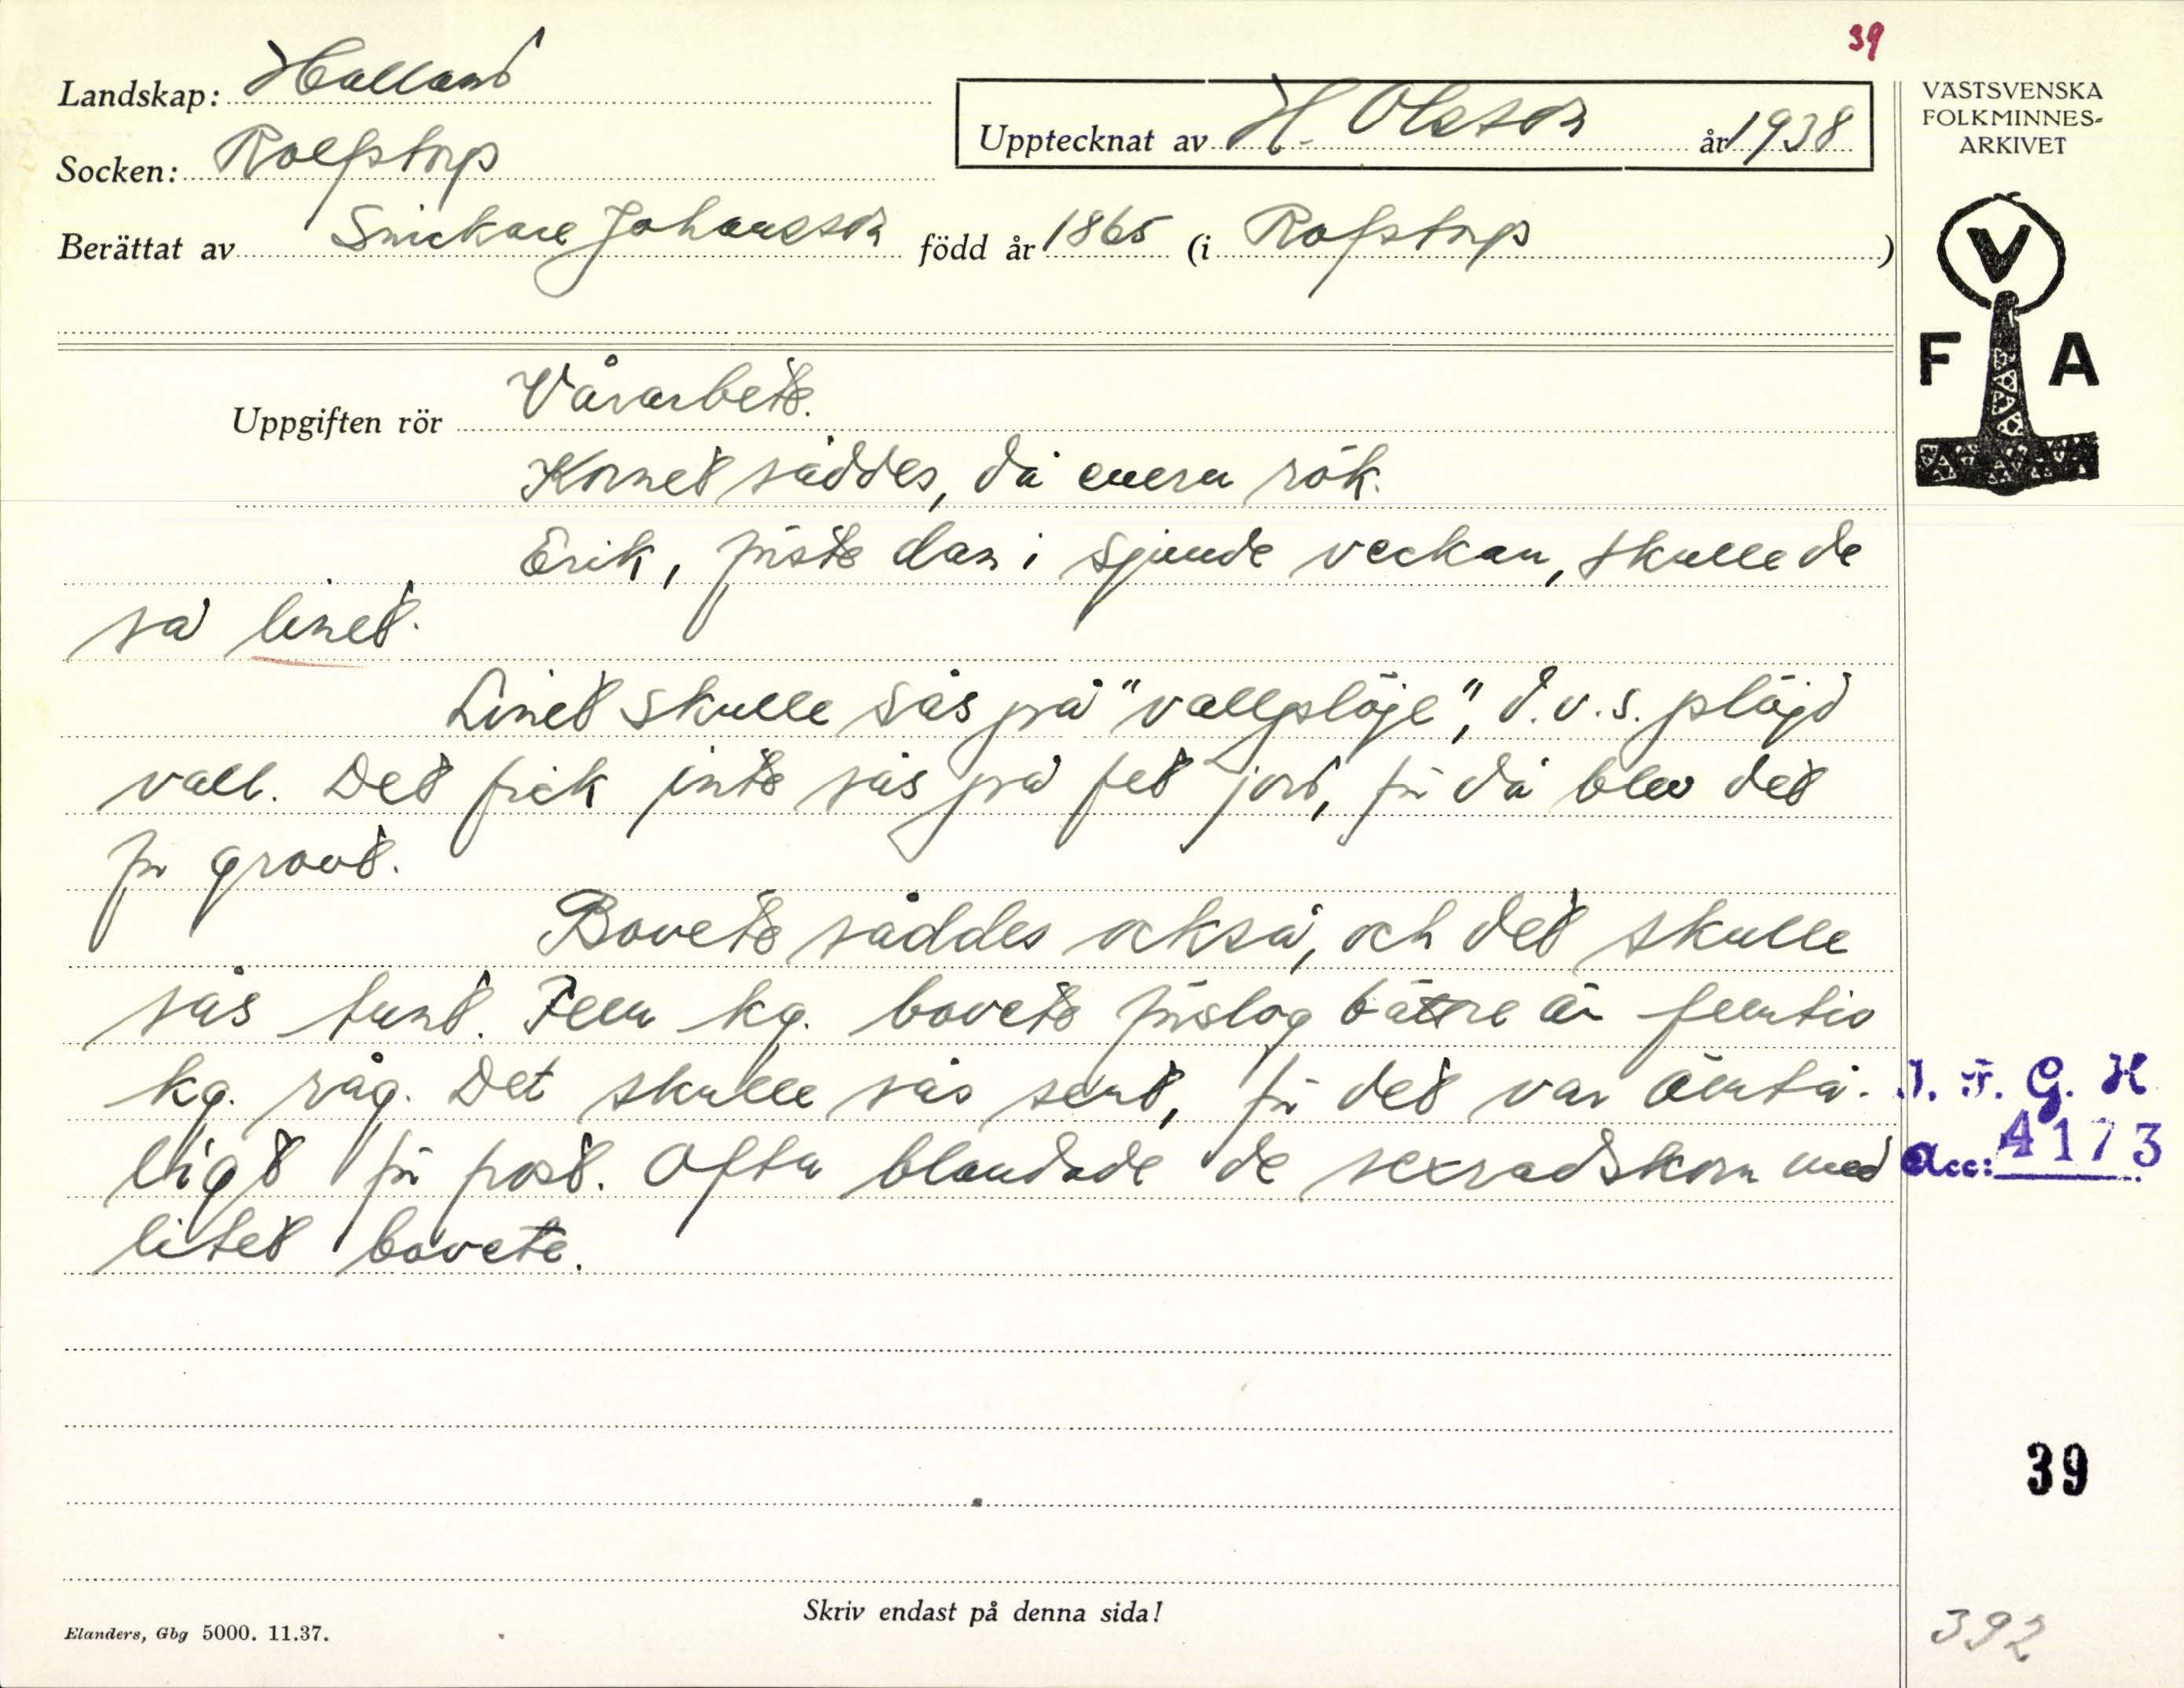 39
Landskap: Halland
Upptecknat av H. Olsson år 1938
VÄSTSVENSKA
FOLKMINNES-
ARKIVET
Socken: Rolfstorp
Berättat av Snickare Johansson född år 1865 (i Rolfstorp)
V
F A
Uppgiften rör Vårarbete.
Kornet såddes, då enern rök.
Erik, första dan i sjunde veckan, skulle de
så linet.
Linet skulle sås på "vallplöje", d.v.s. plöjd
vall. Det fick inte sås på fet jord, för då blev det
för grovt.
Bovete såddes också, och det skulle
sås tunt. Fem kg. bovete förslog bättre än femtio
kg. råg. Det skulle sås sent, för det var ömtå-
ligt för frost. Ofta blandade de sexradskorn med
litet bovete.
I. F. G. H
Acc: 4173
39
Skriv endast på denna sida!
Elanders, Gbg 5000. 11.37.
392